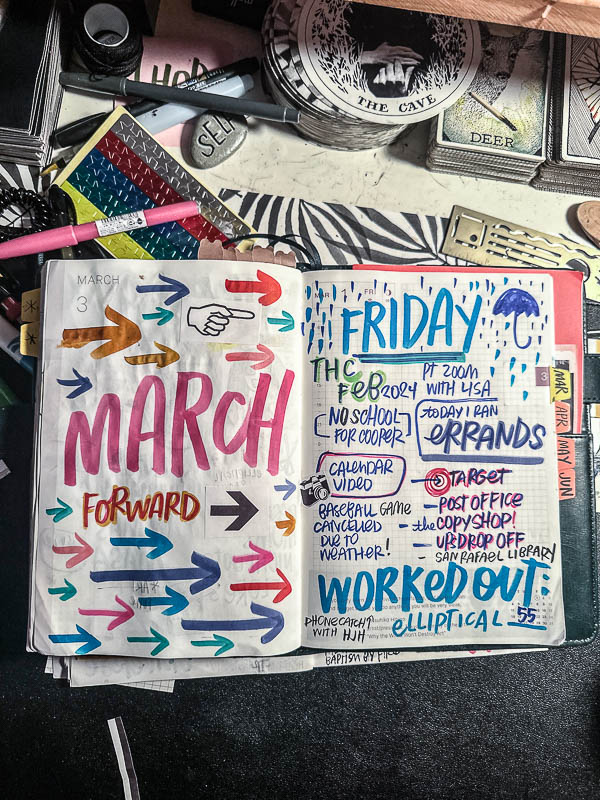 THE CAVE
DEER
SELF
MARCH
3
MARCH
FORWARD
FRIDAY
THC
FEB 2024
PT ZOOM
WITH LISA
NO SCHOOL
FOR COOPER
TODAY I RAN
ERRANDS
CALENDAR
VIDEO
TARGET
BASEBALL GAME
CANCELLED
DUE TO
WEATHER!
- POST OFFICE
- the COPY SHOP!
- UPS DROP OFF
- SAN RAFAEL LIBRARY
WORKED OUT:
ELLIPTICAL 55
PHONE CATCH?
WITH HJH
3
MAR
APR
MAY
JUN
BAPTISM BY FIRE